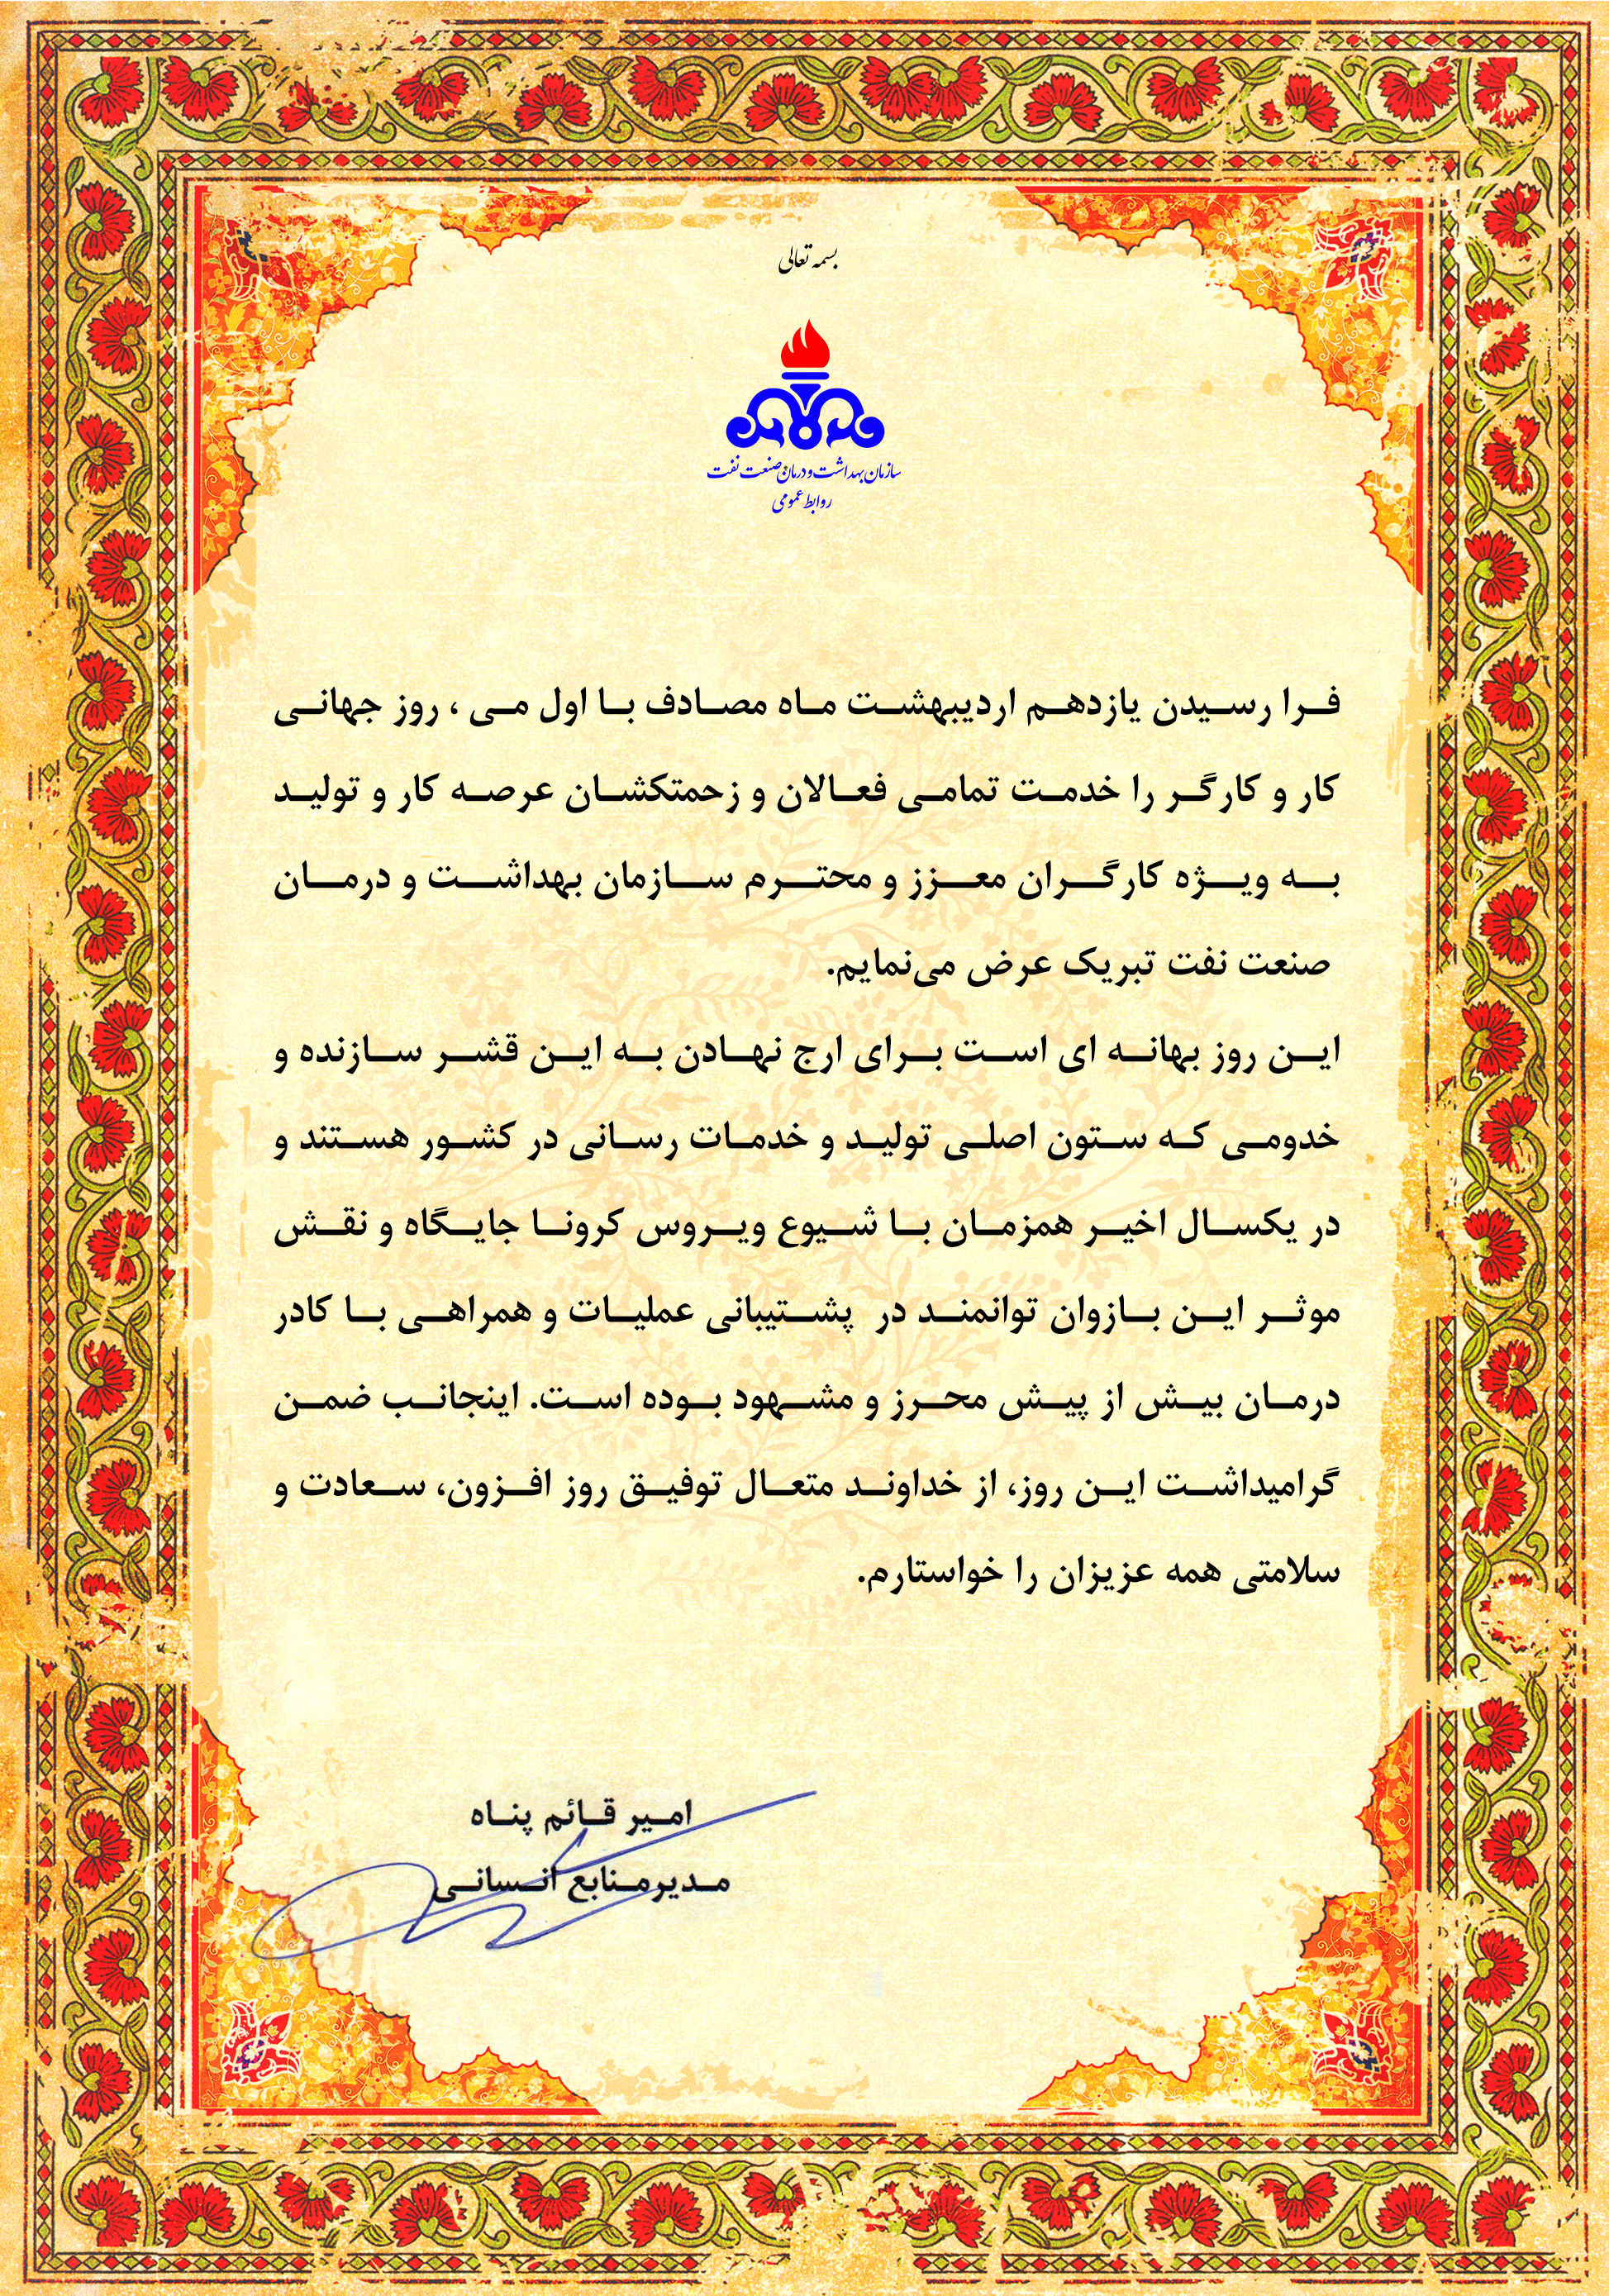 بسمه تعالی
سازمان بهداشت و درمان صنعت نفت
روابط عمومی
فرا رسیدن یازدهم اردیبهشت ماه مصادف با اول می ، روز جهانی
کار و کارگر را خدمت تمامی فعالان و زحمتکشان عرصه کار و تولید
به ویژه کارگران معزز و محترم سازمان بهداشت و درمان
صنعت نفت تبریک عرض می‌نمایم.
این روز بهانه ای است برای ارج نهادن به این قشر سازنده و
خدومی که ستون اصلی تولید و خدمات رسانی در کشور هستند و
در یکسال اخیر همزمان با شیوع ویروس کرونا جایگاه و نقش
موثر این بازوان توانمند در پشتیبانی عملیات و همراهی با کادر
درمان بیش از پیش محرز و مشهود بوده است. اینجانب ضمن
گرامیداشت این روز، از خداوند متعال توفیق روز افزون، سعادت و
سلامتی همه عزیزان را خواستارم.
امیر قائم پناه
مدیرمنابع انسانی